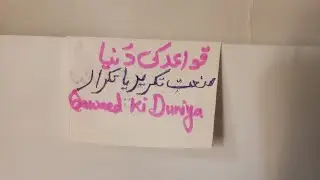 قواعد کی دُنیا
صنعتِ تکریر یا تکرار
Qawaed Ki Duniya